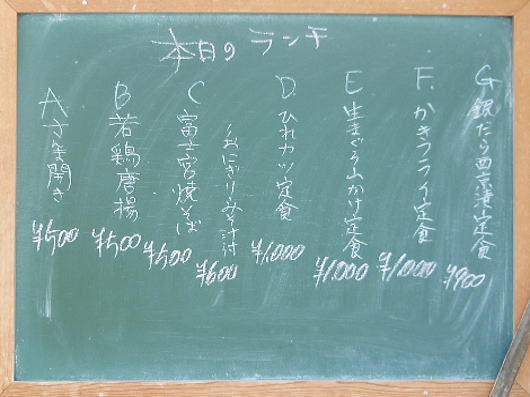 本日のランチ
A さんま開き ¥500
B 若鶏唐揚 ¥500
C 富士宮焼そば ¥500
〃おにぎりみそ汁付 ¥600
D ひれカツ定食 ¥1,000
E 生まぐろ山かけ定食 ¥1,000
F. かきフライ定食 ¥1,000
G 銀だら西京漬定食 ¥900